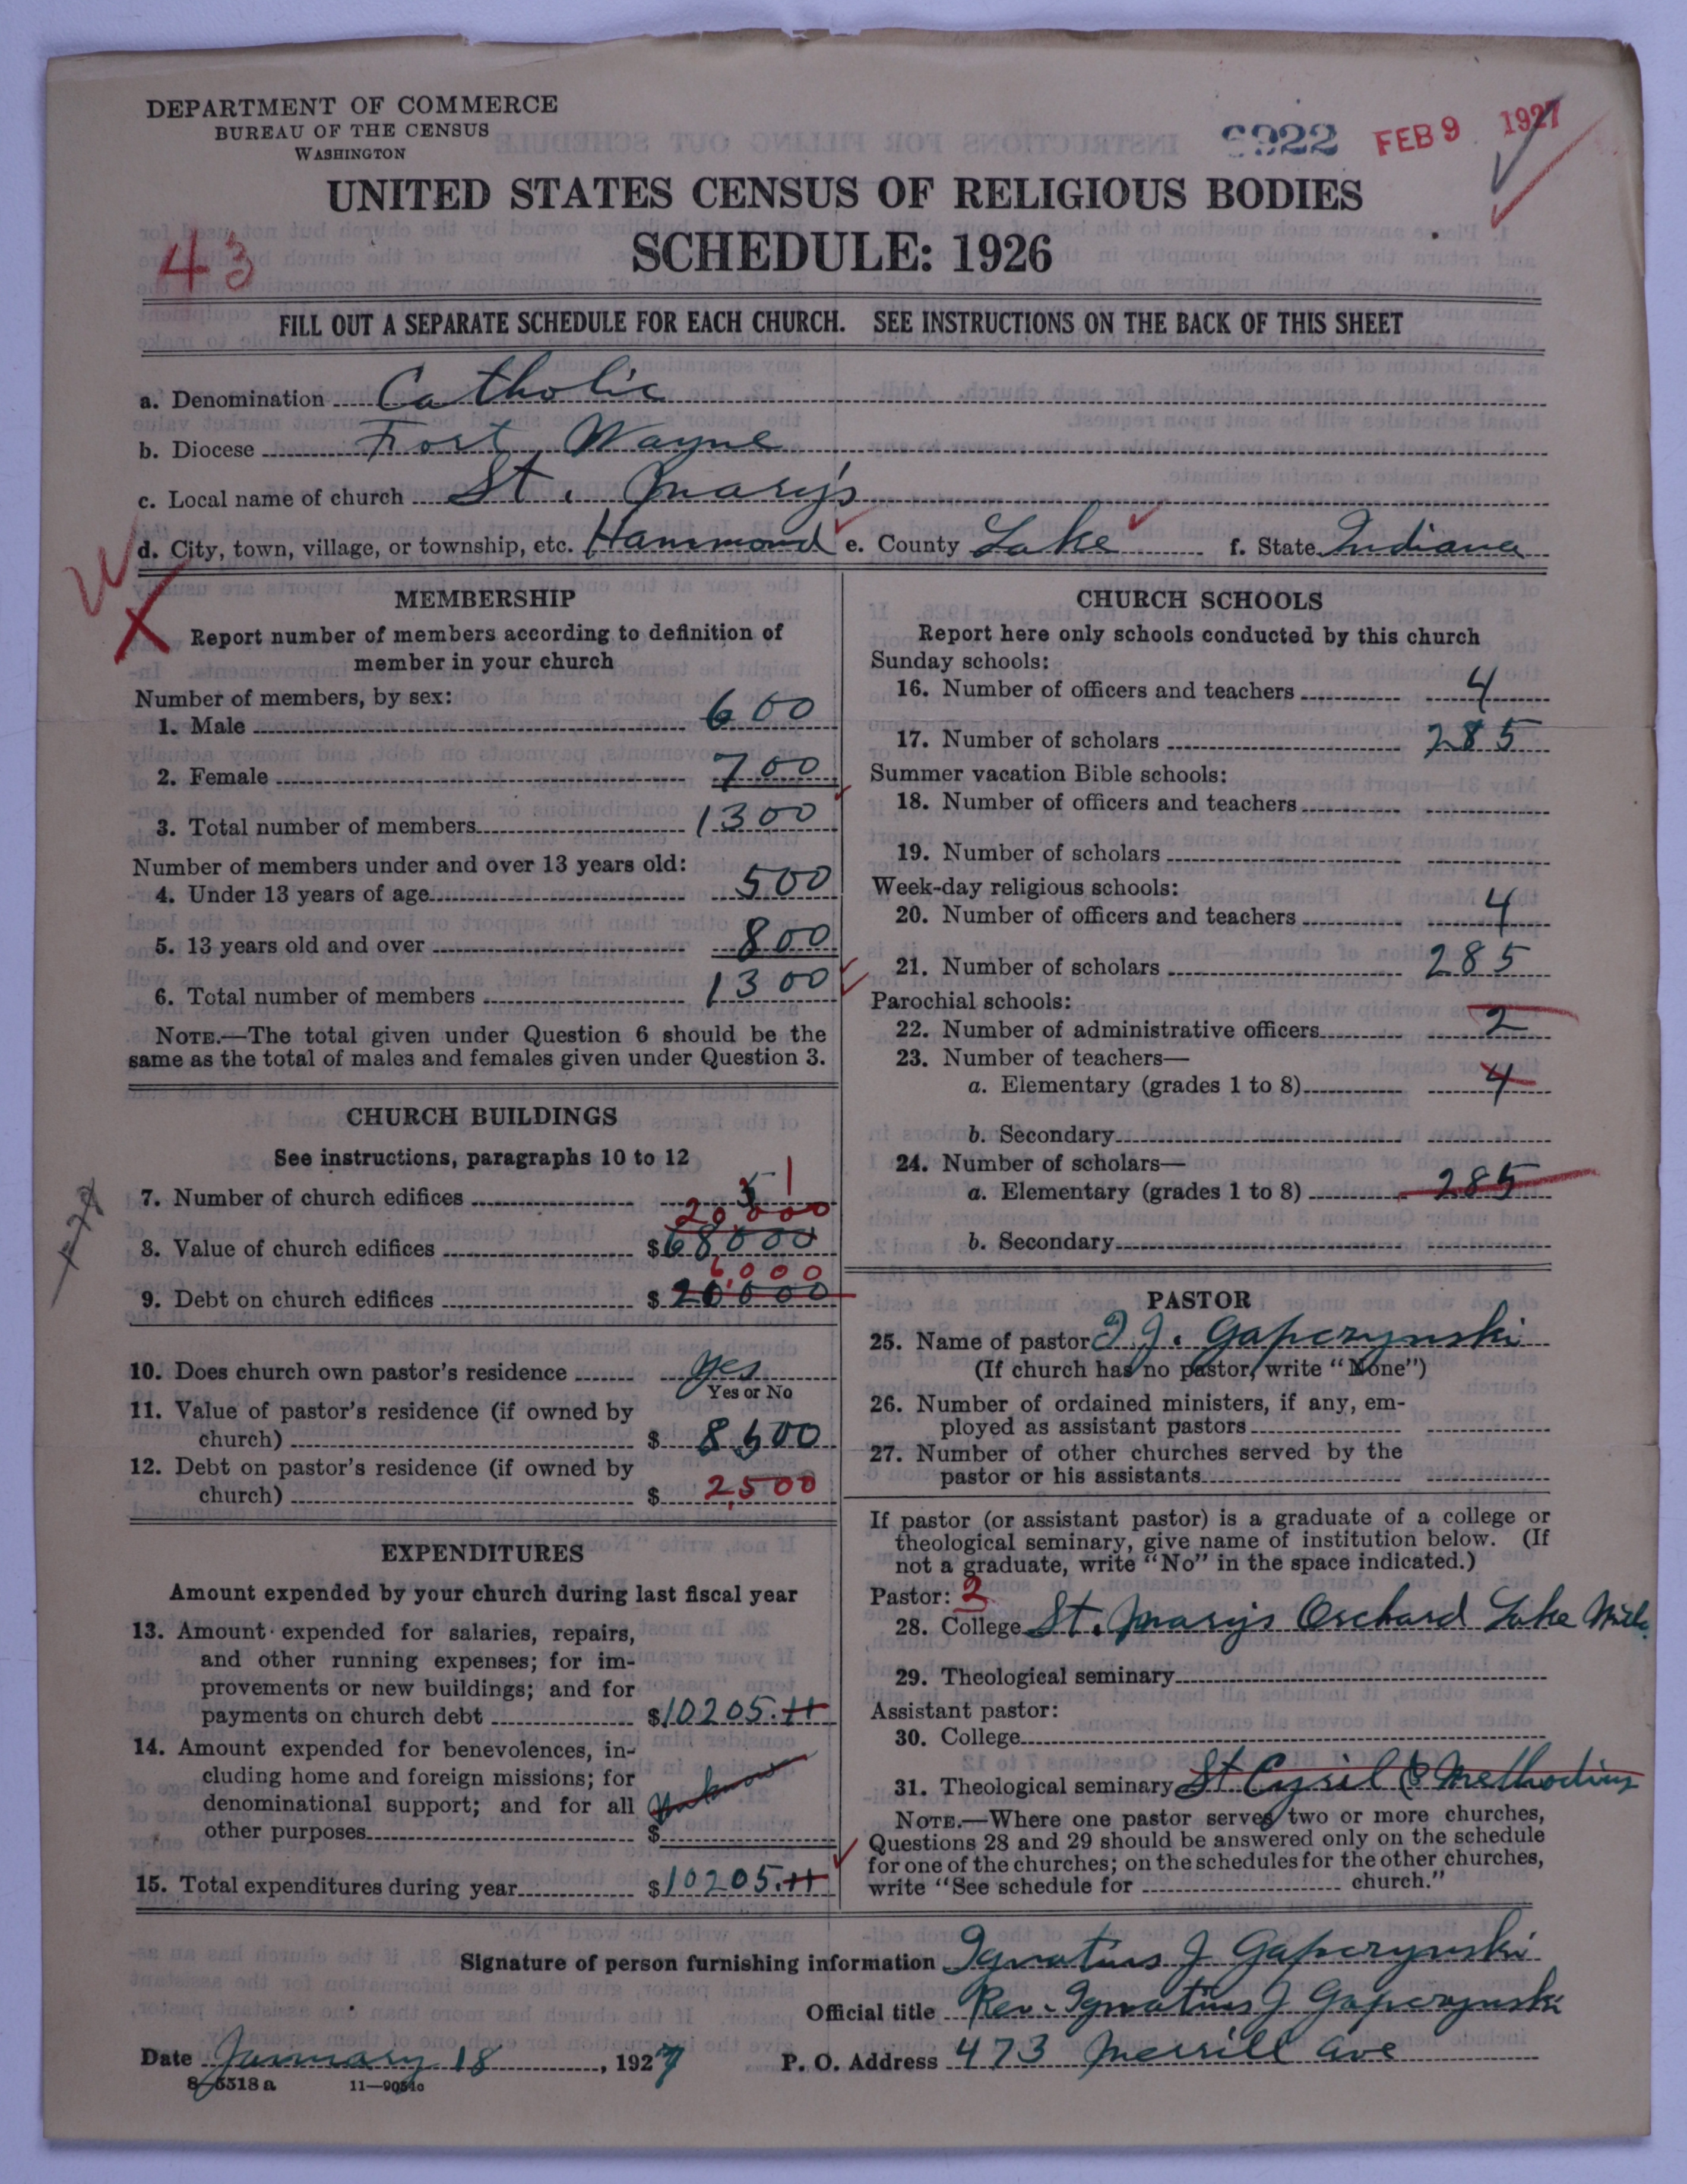 DEPARTMENT OF COMMERCE
BUREAU OF THE CENSUS
WASHINGTON
FEB 9 1927
UNITED STATES CENSUS OF RELIGIOUS BODIES
SCHEDULE: 1926
43
FILL OUT A SEPARATE SCHEDULE FOR EACH CHURCH. SEE INSTRUCTIONS ON THE BACK OF THIS SHEET
a. Denomination Catholic
b. Diocese Fort Wayne
c. Local name of church St. Mary's
d. City, town, village, or township, etc. Hammond e. County Lake f. State Indiana
MEMBERSHIP
Report number of members according to definition of
member in your church
Number of members, by sex:
1. Male 600
2. Female 700
3. Total number of members 1300
Number of members under and over 13 years old:
4. Under 13 years of age 500
5. 13 years old and over 800
6. Total number of members 1300
NOTE.—The total given under Question 6 should be the
same as the total of males and females given under Question 3.
CHURCH BUILDINGS
See instructions, paragraphs 10 to 12
7. Number of church edifices 1
20,000
8. Value of church edifices $68000
6,000
9. Debt on church edifices $20000
10. Does church own pastor's residence Yes
Yes or No
11. Value of pastor's residence (if owned by
church) $8,500
12. Debt on pastor's residence (if owned by
church) $2,500
EXPENDITURES
Amount expended by your church during last fiscal year
13. Amount expended for salaries, repairs,
and other running expenses; for im-
provements or new buildings; and for
payments on church debt $10205.11
14. Amount expended for benevolences, in-
cluding home and foreign missions; for
denominational support; and for all
other purposes $
15. Total expenditures during year $10205.11
CHURCH SCHOOLS
Report here only schools conducted by this church
Sunday schools:
16. Number of officers and teachers 4
17. Number of scholars 285
Summer vacation Bible schools:
18. Number of officers and teachers
19. Number of scholars
Week-day religious schools:
20. Number of officers and teachers 4
21. Number of scholars 285
Parochial schools:
22. Number of administrative officers 2
23. Number of teachers—
a. Elementary (grades 1 to 8) 4
b. Secondary
24. Number of scholars—
a. Elementary (grades 1 to 8) 285
b. Secondary
PASTOR
25. Name of pastor I. J. Gapczynski
(If church has no pastor, write "None")
26. Number of ordained ministers, if any, em-
ployed as assistant pastors
27. Number of other churches served by the
pastor or his assistants
If pastor (or assistant pastor) is a graduate of a college or
theological seminary, give name of institution below. (If
not a graduate, write "No" in the space indicated.)
Pastor: 2
28. College St. Marys Orchard Lake Mich.
29. Theological seminary
Assistant pastor:
30. College
31. Theological seminary St Cyril & Methodius
NOTE.—Where one pastor serves two or more churches,
Questions 28 and 29 should be answered only on the schedule
for one of the churches; on the schedules for the other churches,
write "See schedule for church."
Signature of person furnishing information Ignatius J Gapczynski
Official title Rev. Ignatius J Gapczynski
Date January 18, 1927 P. O. Address 473 Merrill ave
8—5518 a 11—9054c